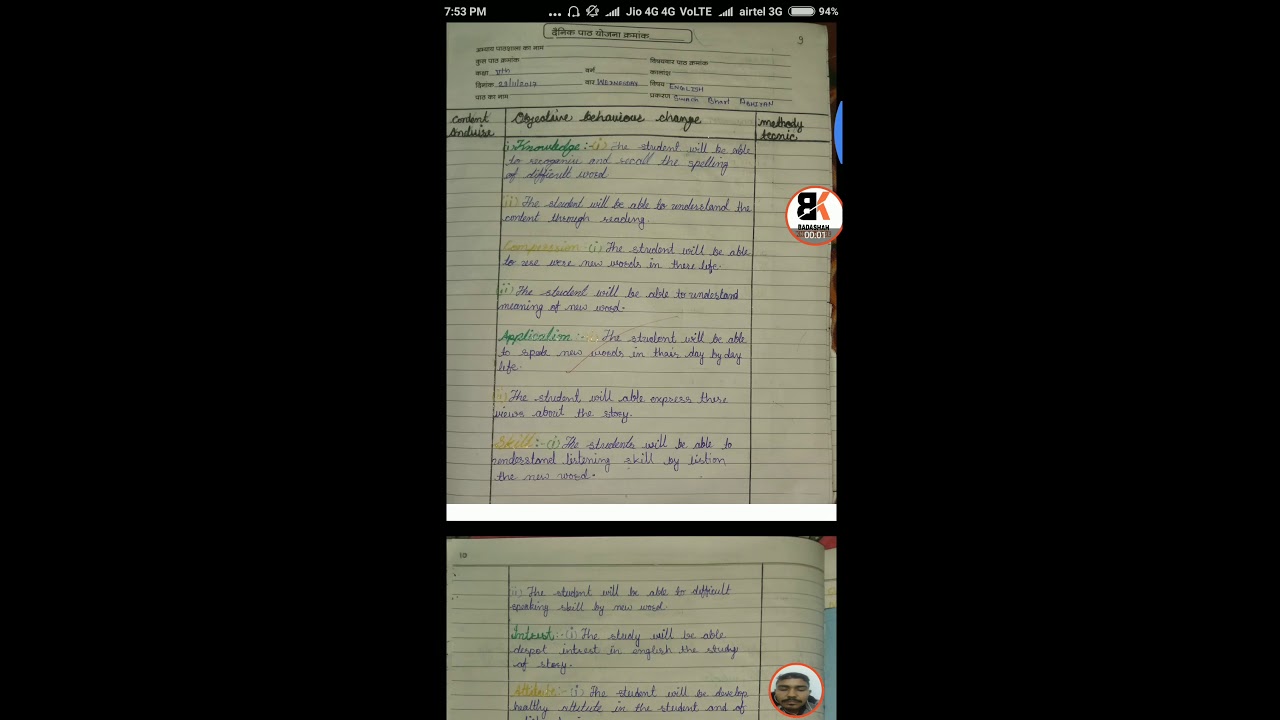 7:53 PM
... Jio 4G 4G VoLTE airtel 3G 94%
दैनिक पाठ योजना क्रमांक
9
अभ्यास पाठशाला का नाम
कुल पाठ क्रमांक विषयवार पाठ क्रमांक
कक्षा वर्ग कालांश
दिनांक वार WEDNESDAY विषय ENGLISH
पाठ का नाम प्रकरण Swach Bhart ABHIYAN
content Objective behaviour change methody
tecnic
i Knowledge:-(i) The student will be able
to recoganise and recall the spelling
of difficult word
(ii) The student will be able to understand the
content through reading.
(i) The student will be able
to use were new words in there life.
(ii) The student will be able to undestand
meaning of new word.
Application:- The student will be able
to speak new words in thair day by day
life.
The student will able express there
views about the story.
Skill:-(i) The students will be able to
understand listening skill by listion
the new word.
BK
BADASHAH
00:01
10
ii) The student will be able to difficult
speaking skill by new word.
Intrest:-(i) The study will be able
intrest in english the study
of story.
(i) The student will be develop
healthy attitute in the student and of